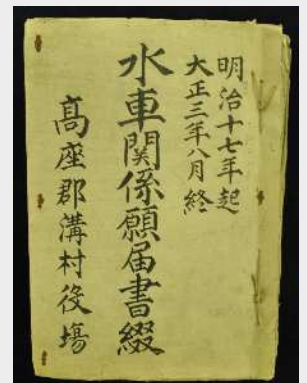 明治十七年起
大正三年八月終
水車関係願届書綴
高座郡溝村役場